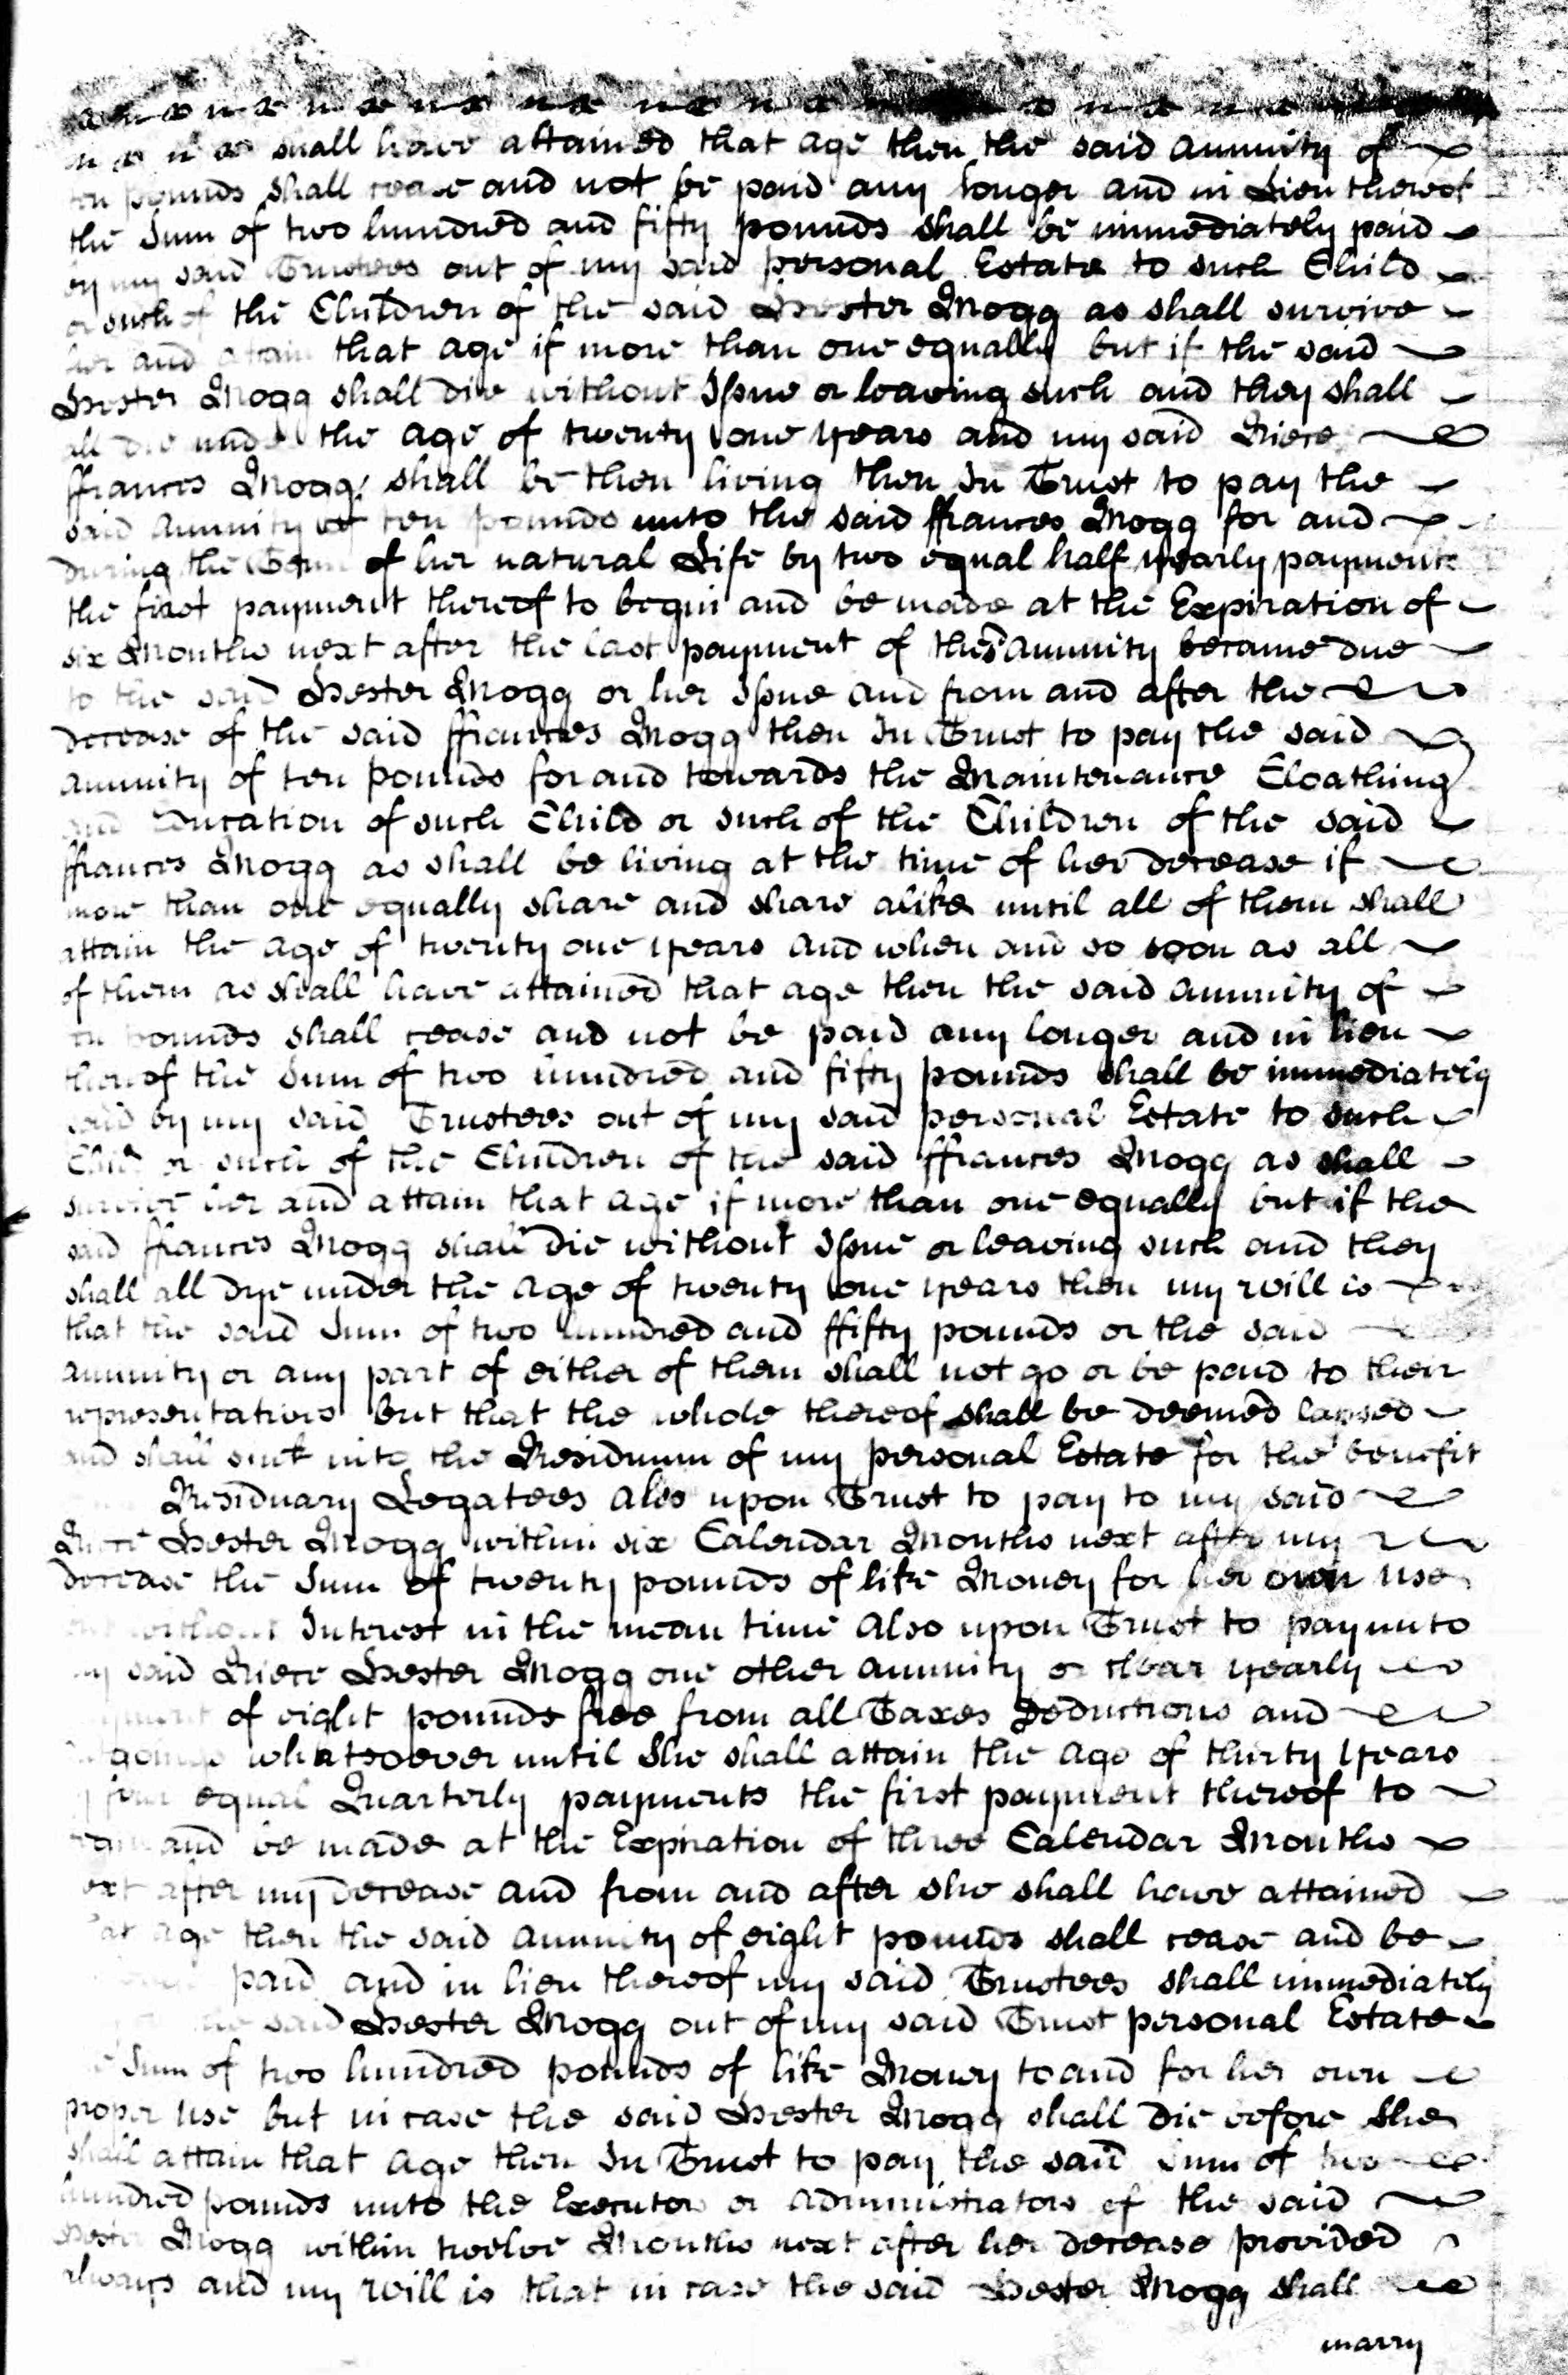 shall have attained that age then the said annuity of
ten pounds shall cease and not be paid any longer and in Lieu thereof
the Sum of two hundred and fifty pounds shall be immediately paid
by my said Trustees out of my said personal Estate to such Child
or such of the Children of the said Hester Mogg as shall survive
her and attain that age if more than one equally but if the said
Hester Mogg shall die without Issue or leaving such and they shall
all die under the age of twenty one years and my said Niece
ffrances Mogg shall be then living then In Trust to pay the
said annuity of ten pounds unto the said ffrances Mogg for and
during the Term of her natural Life by two equal half yearly payments
the first payment thereof to begin and be made at the Expiration of
six Months next after the last payment of the sd annuity became due
to the said Hester Mogg or her Issue and from and after the
decease of the said ffrances Mogg then In Trust to pay the said
annuity of ten pounds for and towards the Maintenance Cloathing
and Education of such Child or such of the Children of the said
ffrances Mogg as shall be living at the time of her decease if
more than one equally share and share alike until all of them shall
attain the age of twenty one years and when and so soon as all
of them as shall have attained that age then the said annuity of
ten pounds shall cease and not be paid any longer and in lieu
thereof the Sum of two hundred and fifty pounds shall be immediately
paid by my said Trustees out of my said personal Estate to such
Child or such of the Children of the said ffrances Mogg as shall
survive her and attain that age if more than one equally but if the
said ffrances Mogg shall die without Issue or leaving such and they
shall all dye under the age of twenty one years then my will is
that the said Sum of two hundred and ffifty pounds or the said
annuity or any part of either of them shall not go or be paid to their
representatives but that the whole thereof shall be deemed lapsed
and shall sink into the Residuum of my personal Estate for the benefit
Residuary Legatees also upon Trust to pay to my said
Niece Hester Mogg within six Calendar Months next after my
decease the Sum of twenty pounds of like Money for her own use
but without Interest in the mean time also upon Trust to pay unto
my said Niece Hester Mogg one other annuity or clear yearly
payment of eight pounds free from all Taxes Deductions and
outgoings whatsoever until She shall attain the age of thirty years
by four equal Quarterly payments the first payment thereof to
begin and be made at the Expiration of three Calendar Months
next after my decease and from and after she shall have attained
that age then the said annuity of eight pounds shall cease and be
paid and in lieu thereof my said Trustees shall immediately
the said Hester Mogg out of my said Trust personal Estate
the Sum of two hundred pounds of like Money to and for her own
proper use but in case the said Hester Mogg shall die before She
shall attain that age then In Trust to pay the said Sum of two
hundred pounds unto the Executors or administrators of the said
Hester Mogg within twelve Months next after her decease provided
always and my will is that in case the said Hester Mogg shall
marry